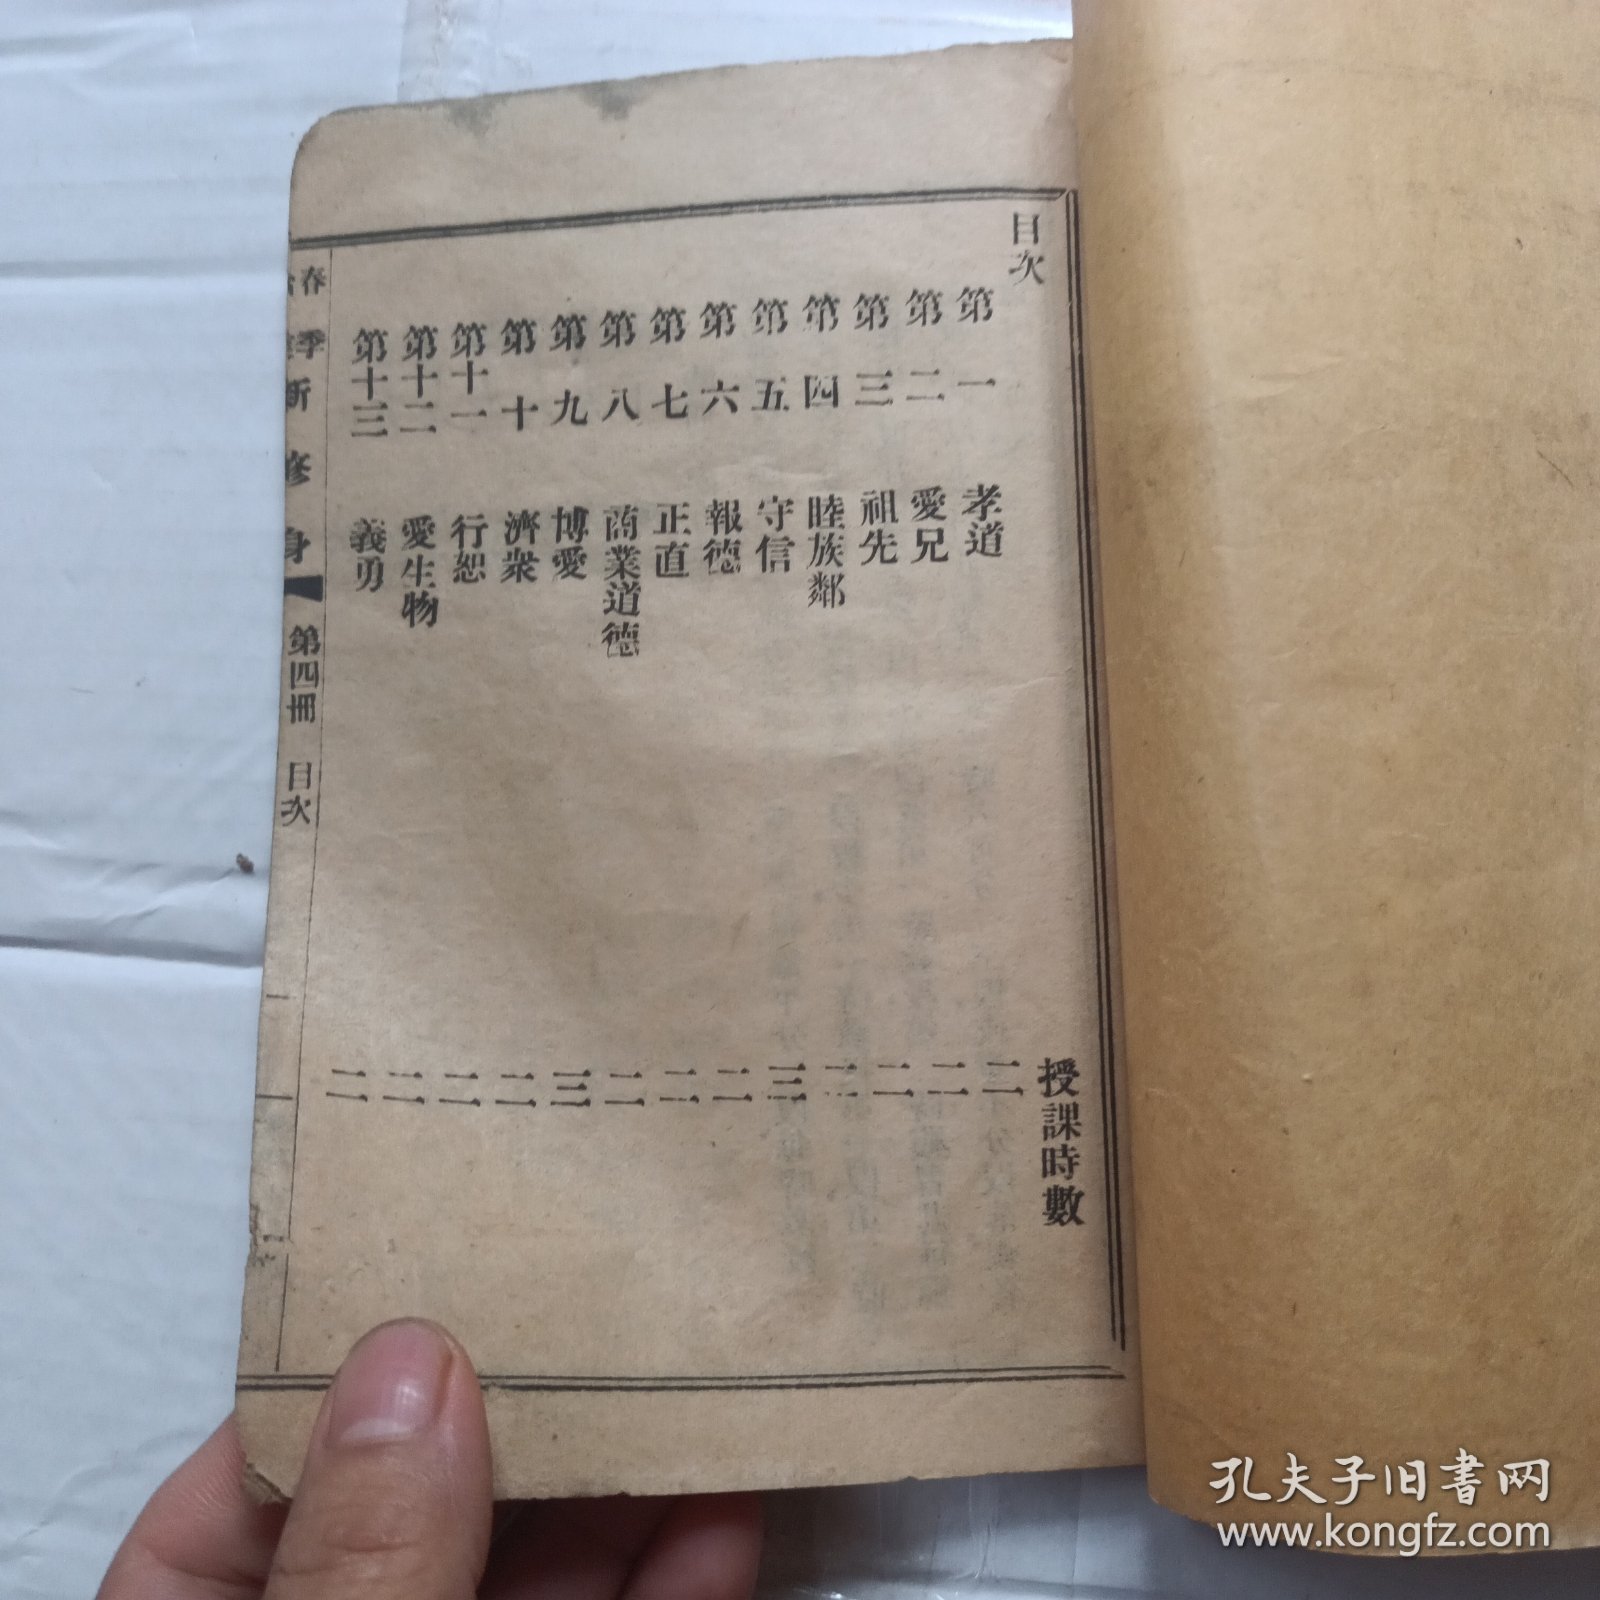 目次
授課時數
第一 孝道 二
第二 愛兄 二
第三 祖先 二
第四 睦族鄰 二
第五 守信 三
第六 報德 二
第七 正直 二
第八 商業道德 二
第九 博愛 三
第十 濟衆 二
第十一 行恕 二
第十二 愛生物 二
第十三 義勇 二
春季
新修身 第四冊 目次 一
孔夫子旧書网
www.kongfz.com